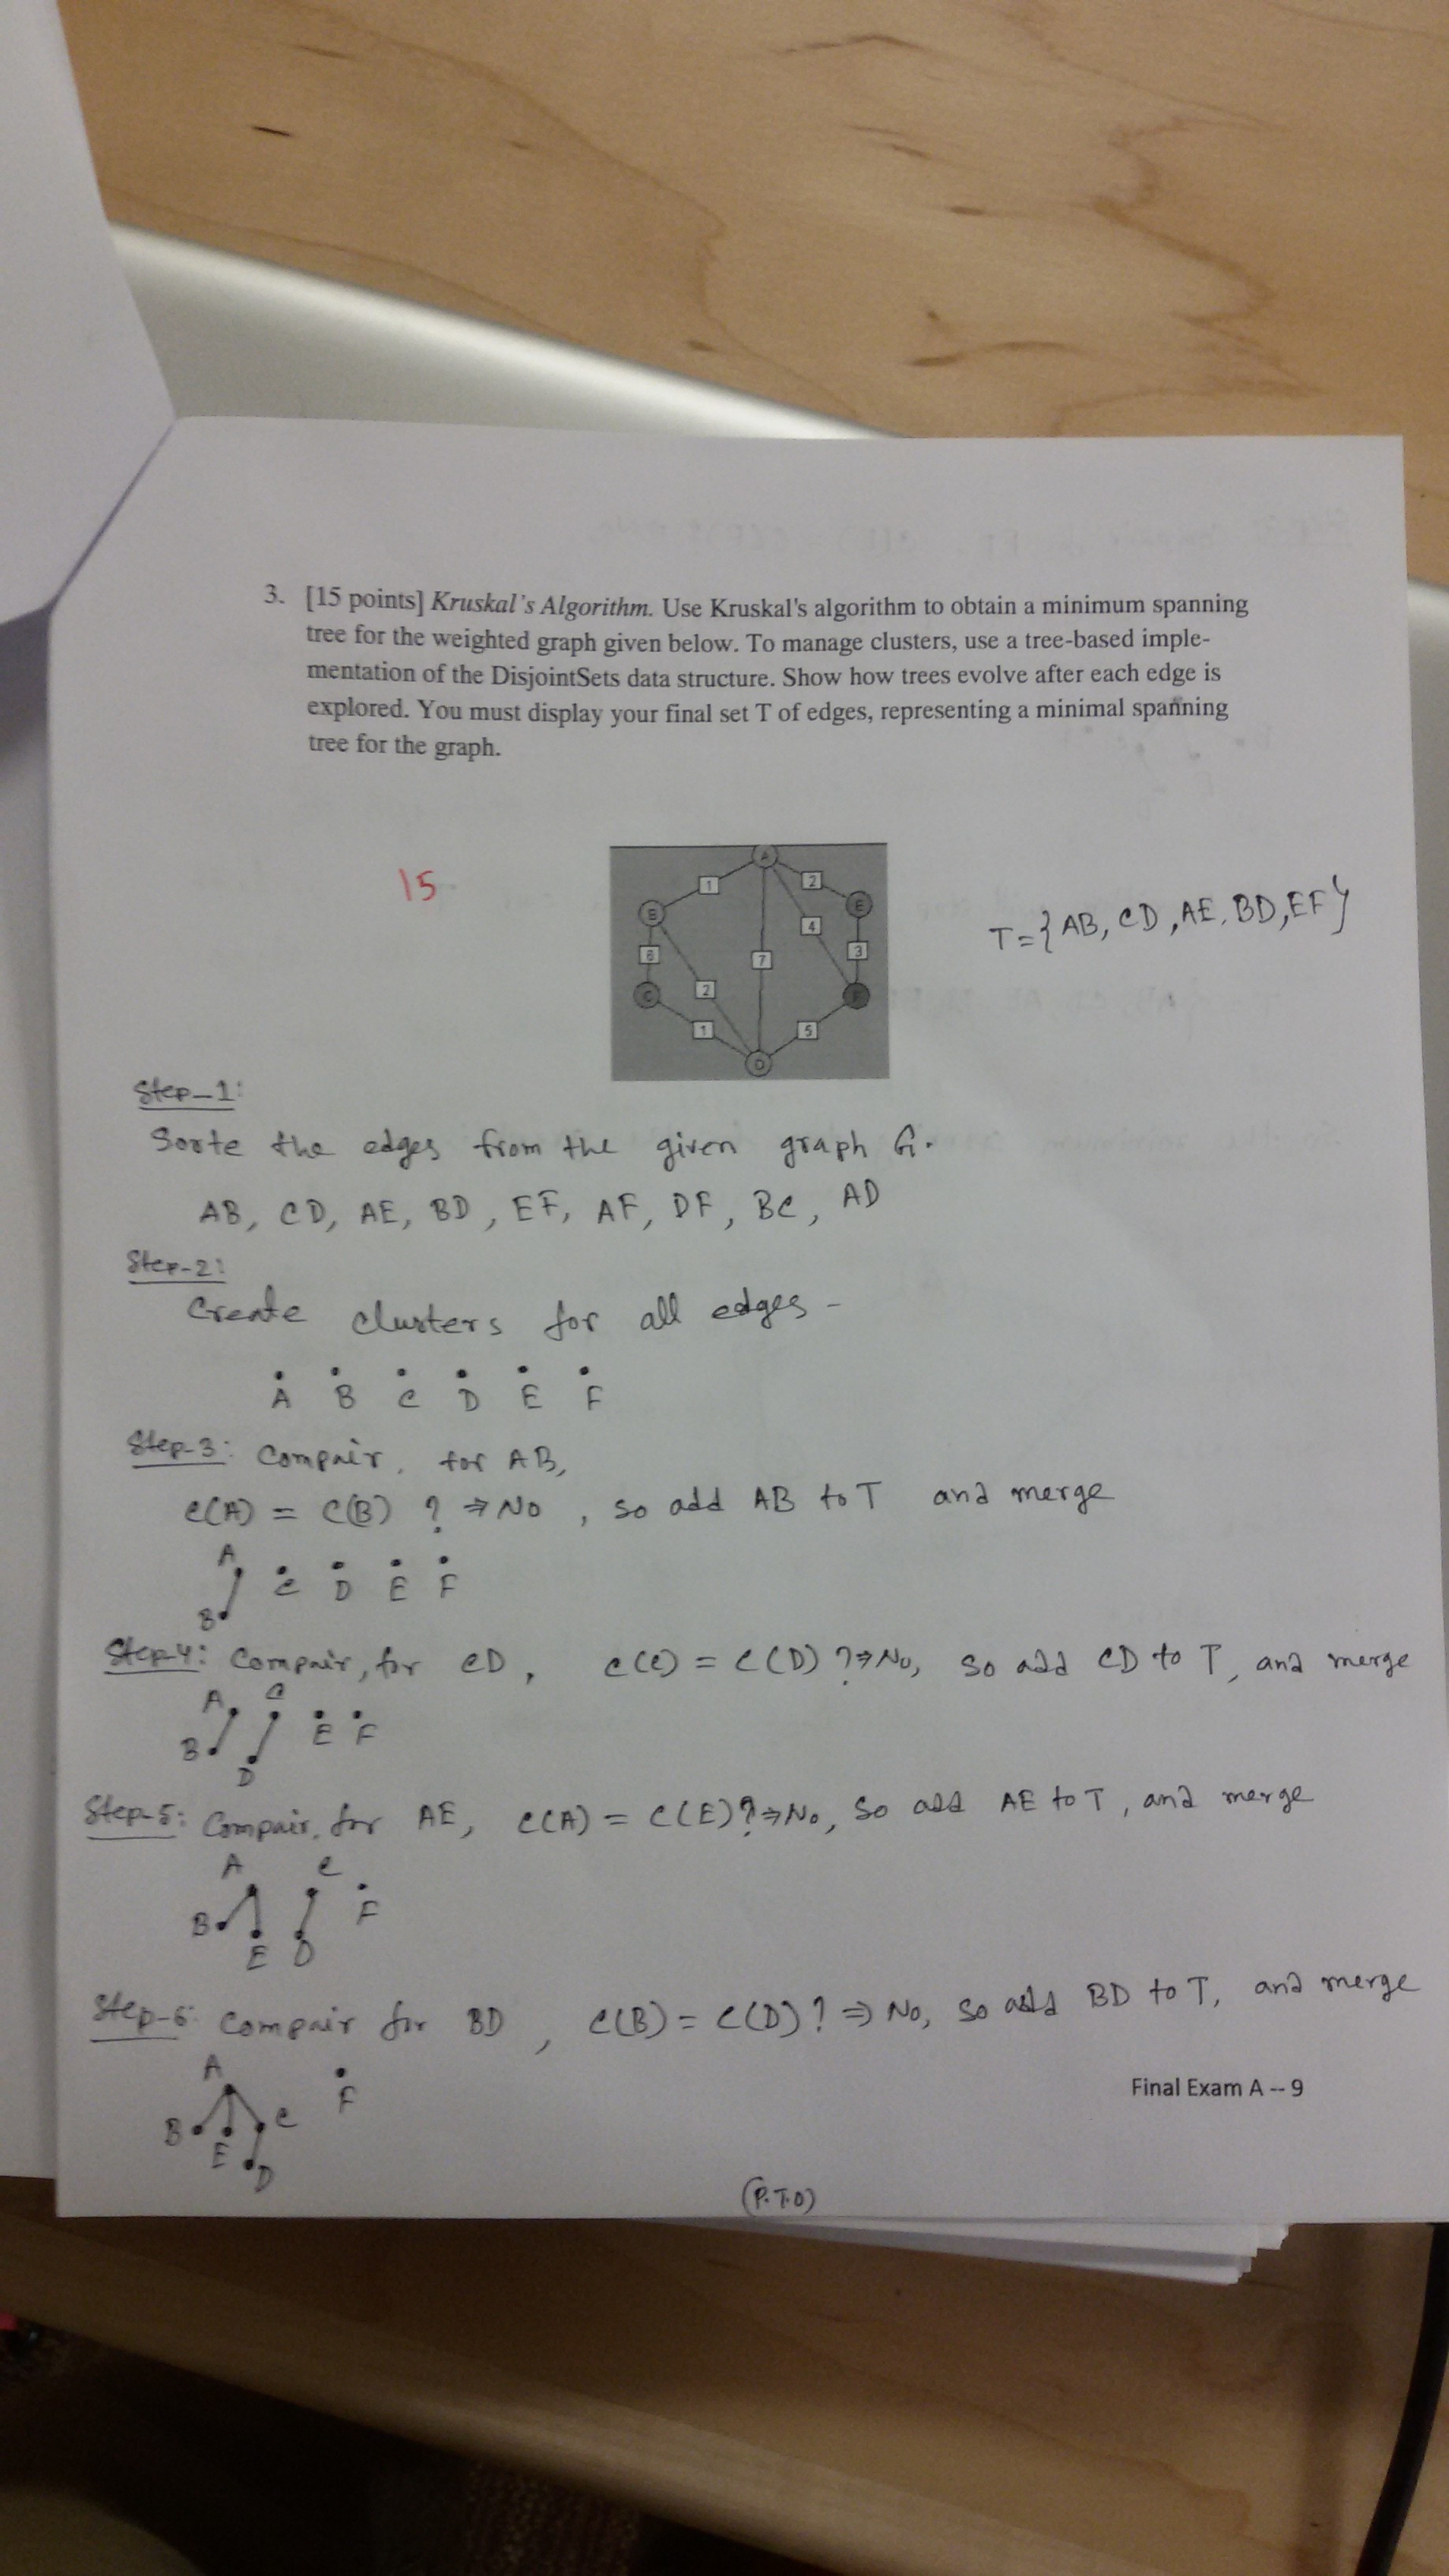 3. [15 points] Kruskal's Algorithm. Use Kruskal's algorithm to obtain a minimum spanning
tree for the weighted graph given below. To manage clusters, use a tree-based imple-
mentation of the DisjointSets data structure. Show how trees evolve after each edge is
explored. You must display your final set T of edges, representing a minimal spanning
tree for the graph.
15
A
1 2
B E
4
6 7 3
2
C F
1 5
D
T={AB, CD, AE, BD, EF}
Step-1:
Sorte the edges from the given graph G.
AB, CD, AE, BD, EF, AF, DF, BC, AD
Step-2:
Create clusters for all edges -
A B C D E F
Step-3: Compair, for AB,
C(A) = C(B) ? ⇒ No , so add AB to T and merge
A
C D E F
B
Step-4: Compair, for CD, C(C) = C(D) ? ⇒ No, so add CD to T, and merge
A C
B E F
D
Step-5: Compair, for AE, C(A) = C(E) ? ⇒ No, so add AE to T, and merge
A C
B F
E D
Step-6: Compair for BD , C(B) = C(D) ? ⇒ No, so add BD to T, and merge
A
F
B C
E D
Final Exam A -- 9
(P.T.O)